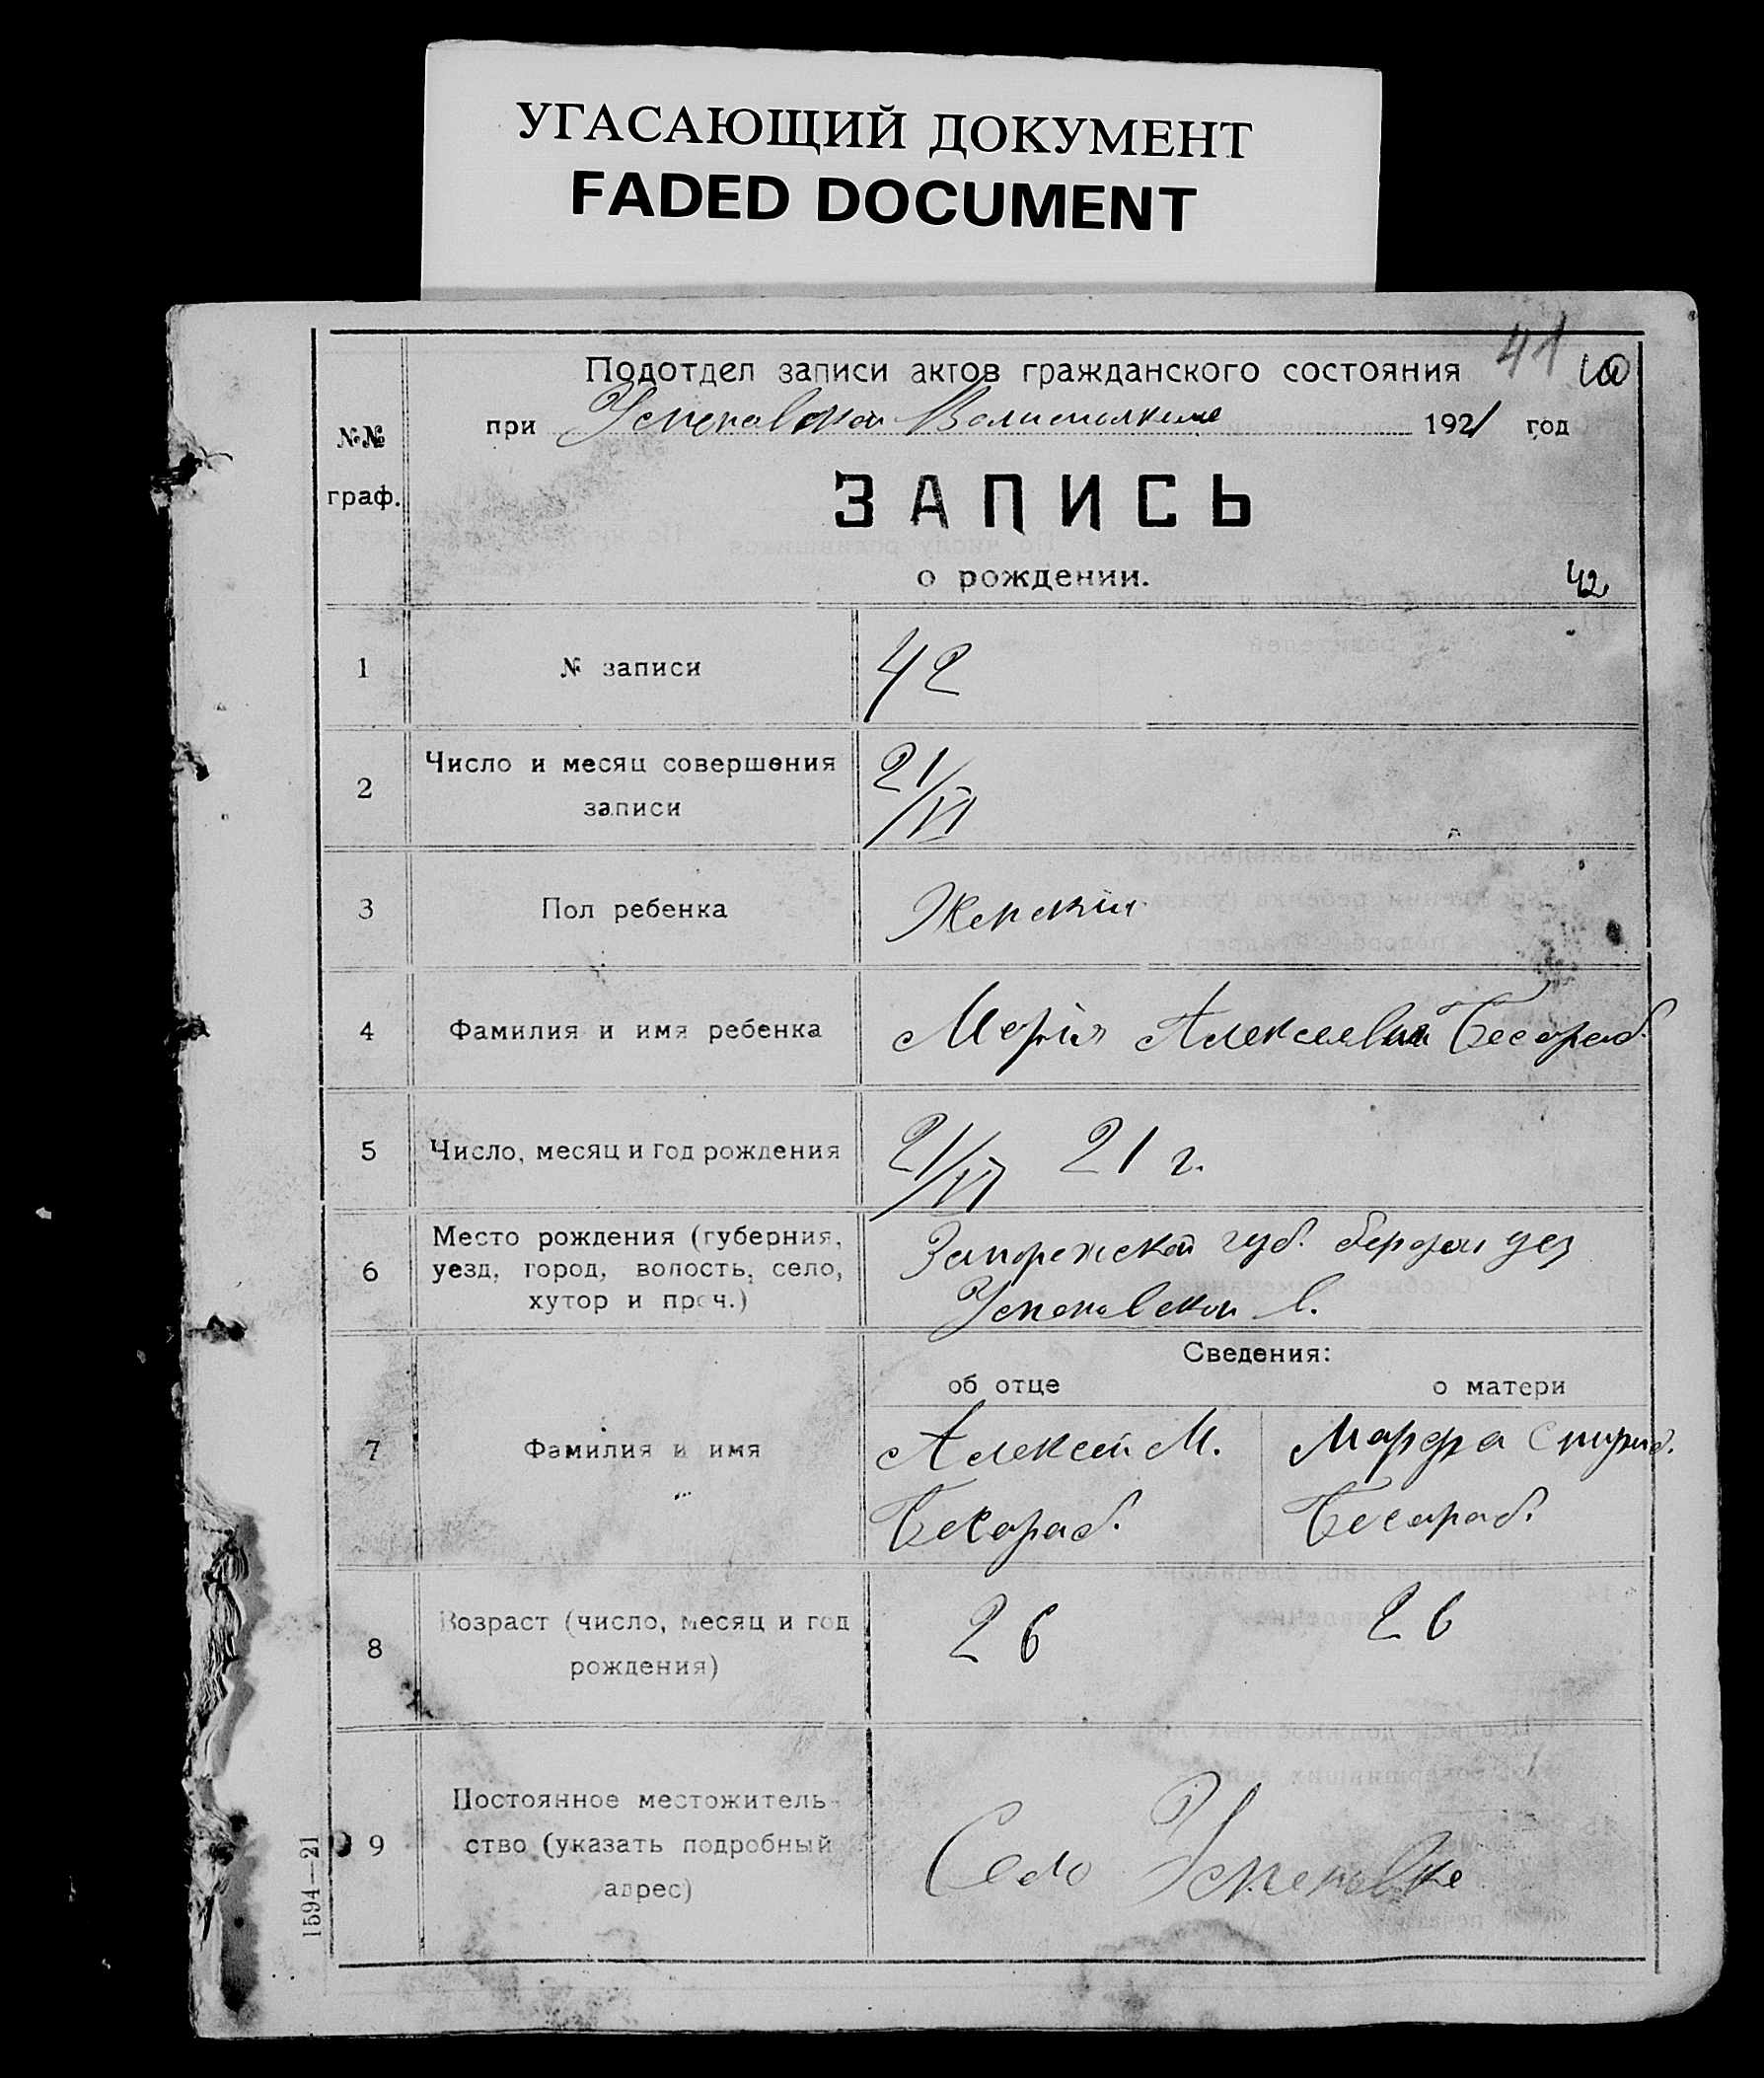 УГАСАЮЩИЙ ДОКУМЕНТ
FADED DOCUMENT
41
Подотдел записи актов гражданского состояния
при Успеновской 1921 год
№№
граф.
ЗАПИСЬ
о рождении.
42
1 № записи 42
2 Число и месяц совершения
записи
21/VI
3 Пол ребенка Женский
4 Фамилия и имя ребенка Мерія Алексеевна Бесараб.
5 Число, месяц и год рождения 21/VI 21 г.
6 Место рождения (губерния,
уезд, город, волость, село,
хутор и проч.)
Запорежской губ. Бердян уез
Успеновской в.
Сведения:
об отце о матери
7 Фамилия и имя
Алексей М. Марфа Спирид.
Бесараб. Бесараб.
8 Возраст (число, месяц и год
рождения)
26 26
9 Постоянное местожитель-
ство (указать подробный
адрес)
Село Успеновка
1594—21